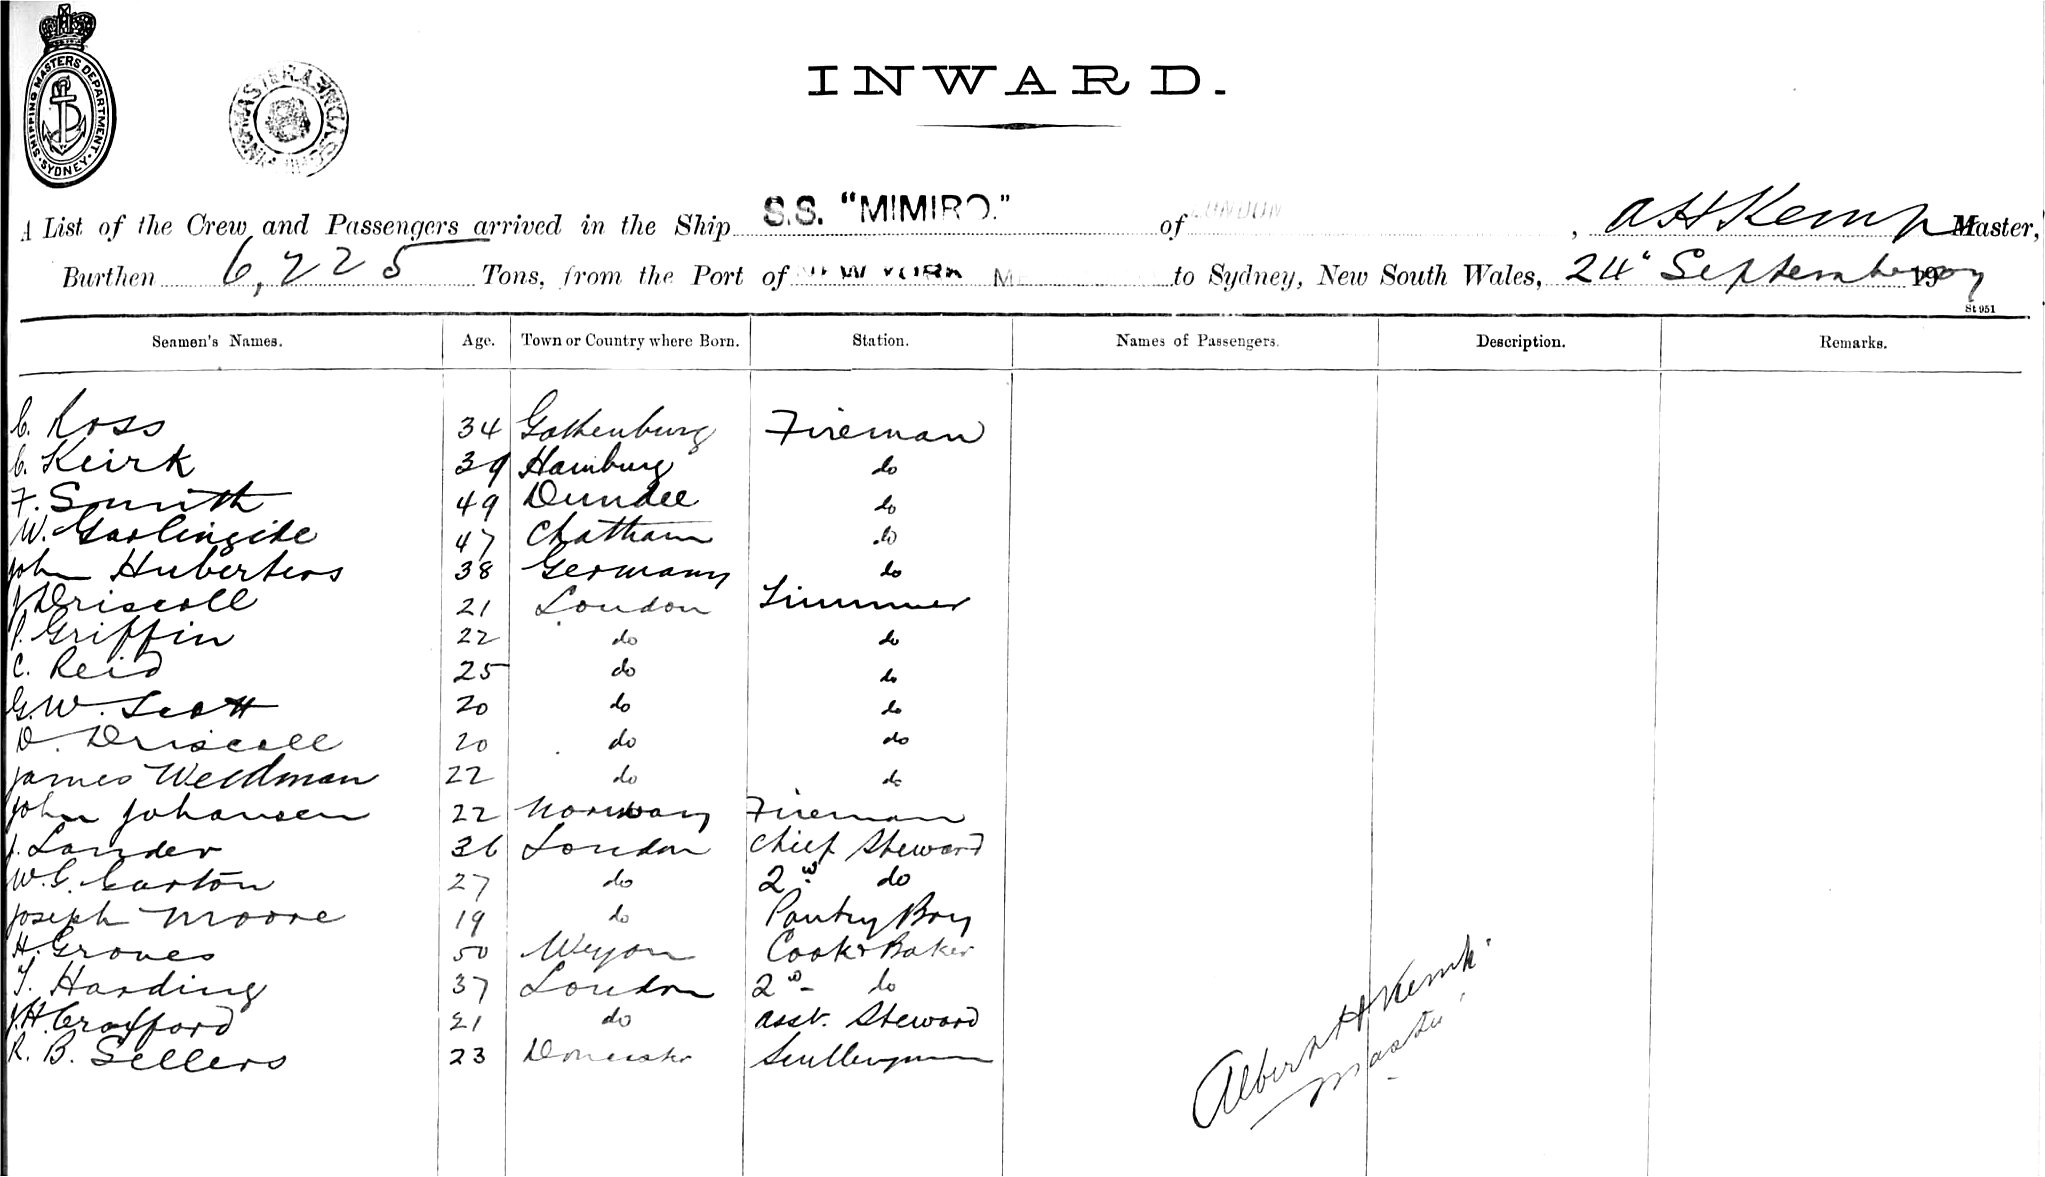 SHIPPING MASTERS DEPARTMENT
SYDNEY
INWARD.
A List of the Crew and Passengers arrived in the Ship S.S. "MIMIRO." of LONDON, A H Kemp Master,
Burthen 6,225 Tons, from the Port of NEW YORK to Sydney, New South Wales, 24" September 1907
St 951
Seamen's Names. Age. Town or Country where Born. Station. Names of Passengers. Description. Remarks.
C. Ross 34 Gothenburg Fireman
C. Keirk 39 Hamburg do
F. Smith 49 Dundee do
W. 47 Chatham do
John Huberters 38 Germany do
J. Driscoll 21 London Trimmer
P. Griffin 22 do do
C. Reid 25 do do
G. W. Scott 20 do do
D. Driscoll 20 do do
James Weedman 22 do do
John Johansen 22 Norway Fireman
J. Lander 36 London Chief Steward
W. G. Garton 27 do 2nd do
Joseph Moore 19 do Pantry Boy
H. Groves 50 Cook & Baker
T. Harding 37 London 2nd do
J. H. Crafford 21 do asst. Steward
R. B. Sellers 23 Doncaster Sculleryman
Albert H Kemp
Master